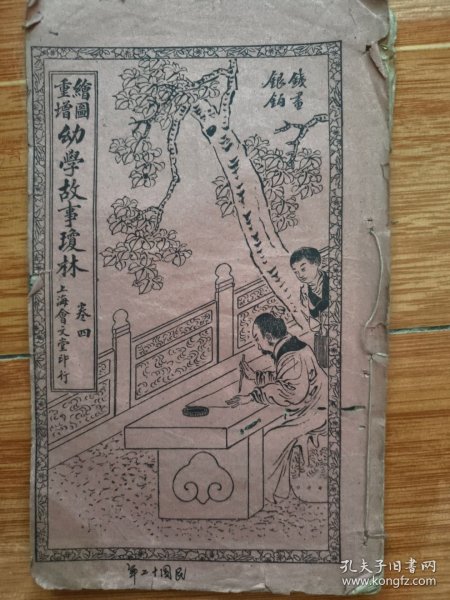 鐵畫
銀鉤
繪圖
重增
幼學故事瓊林
卷四
上海會文堂印行
民國十二年
孔夫子旧书网
www.kongfz.com